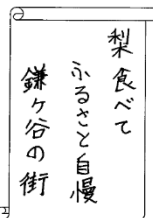 梨食べて
ふるさと自慢
鎌ヶ谷の街